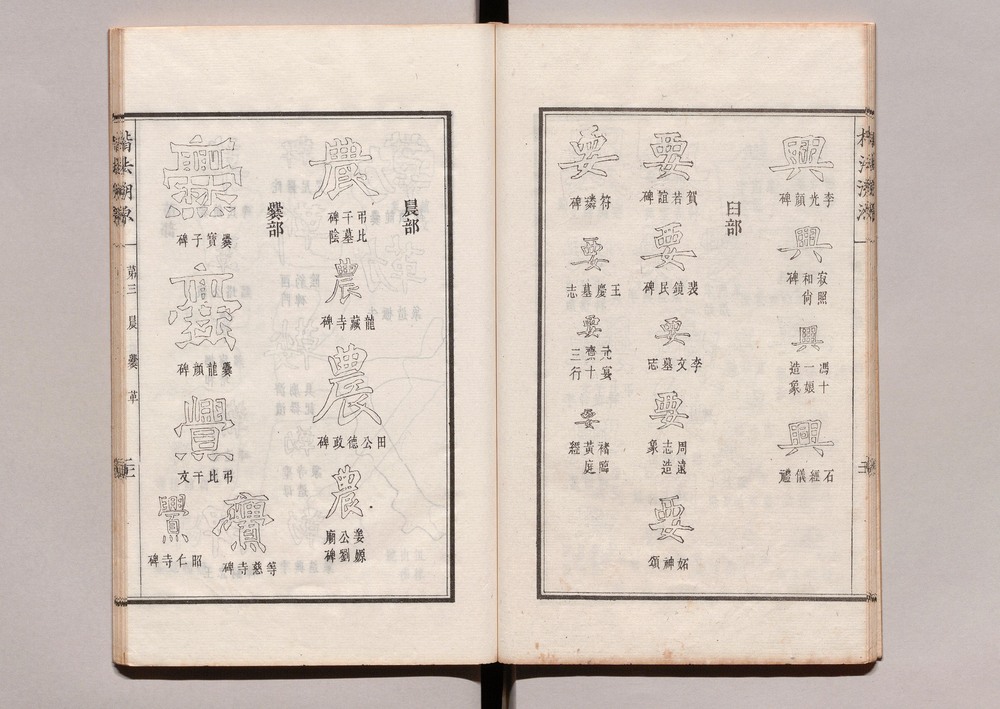 興
李光顔碑
興
寂照和尚碑
興
馮十一娘造象
興
石經儀禮
𦥑部
要
賀若誼碑
要
裴鏡民碑
要
李文墓志
要
周遠志造象
要
妬神頌
要
符璘碑
要
王慶墓志
要
元賓齋三十行
要
褚臨黃庭經
晨部
農
弔比干墓碑陰
農
龍藏寺碑
農
田公德政碑
農
姜嫄劉公廟碑
爨部
爨
爨寶子碑
爨
爨龍顔碑
釁
弔比干文
釁
等慈寺碑
釁
昭仁寺碑
楷法溯源
第三 晨 爨 革